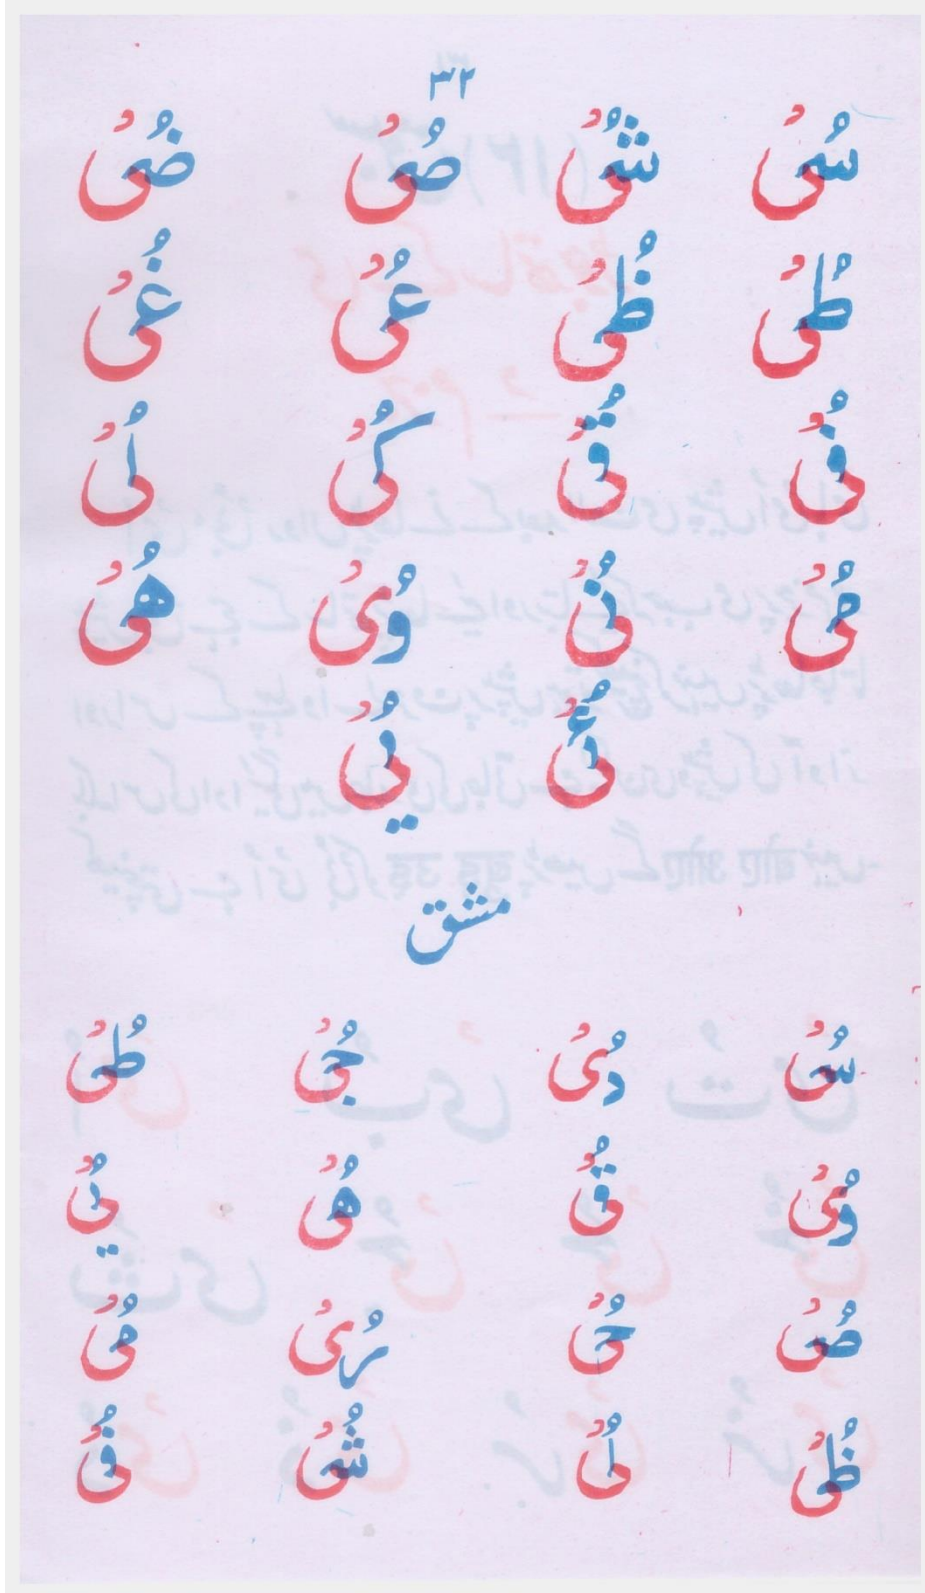 ۳۲
سُیُ شُیُ صُیُ ضُیُ
طُیُ ظُیُ عُیُ غُیُ
فُیُ قُیُ کُیُ لُیُ
مُیُ نُیُ وُیُ ھُیُ
ءُیُ یُیُ
مشق
سُیُ دُیُ جُیُ طُیُ
وُیُ قُیُ ھُیُ یُیُ
صُیُ حُیُ رُیُ مُیُ
ظُیُ لُیُ شُیُ فُیُ